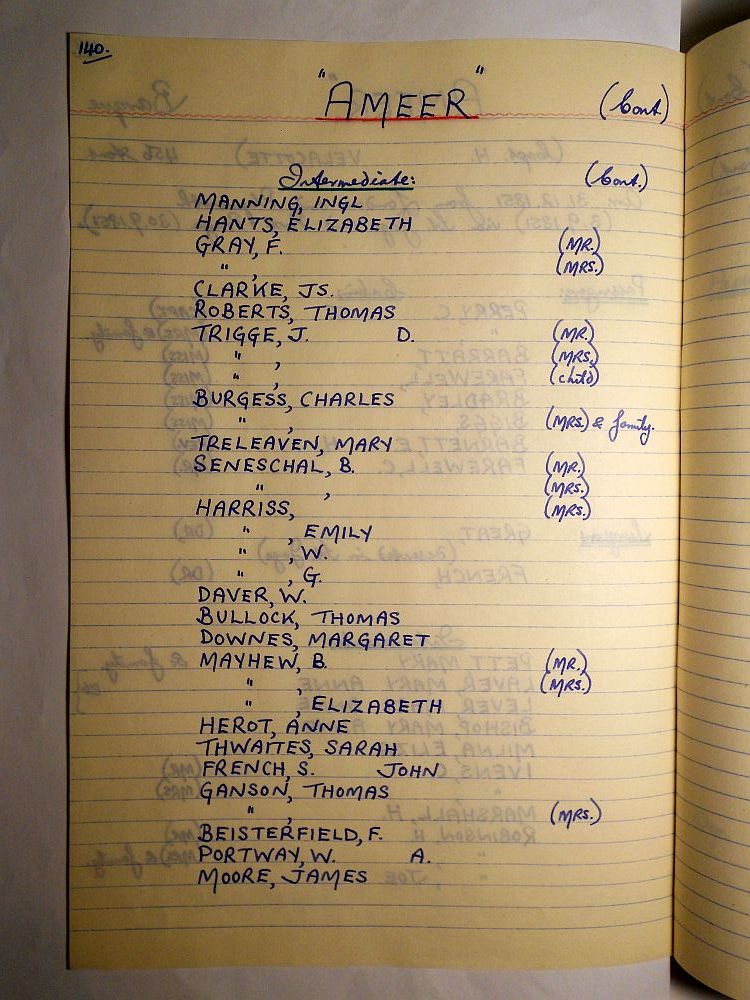 140.
"AMEER" (Cont)
Intermediate: (Cont.)
MANNING, INGL
HANTS, ELIZABETH
GRAY, F. (MR.)
" , (MRS.)
CLARKE, JS.
ROBERTS, THOMAS
TRIGGE, J. D. (MR.)
" , (MRS.)
" , (child)
BURGESS, CHARLES
" , (MRS.) & family.
TRELEAVEN, MARY
SENESCHAL, B. (MR.)
" , (MRS.)
HARRISS, (MRS.)
" , EMILY
" , W.
" , G.
DAVER, W.
BULLOCK, THOMAS
DOWNES, MARGARET
MAYHEW, B. (MR.)
" , (MRS.)
" , ELIZABETH
HEROT, ANNE
THWAITES, SARAH
FRENCH, S. JOHN
GANSON, THOMAS
" , (MRS.)
BEISTERFIELD, F.
PORTWAY, W. A.
MOORE, JAMES